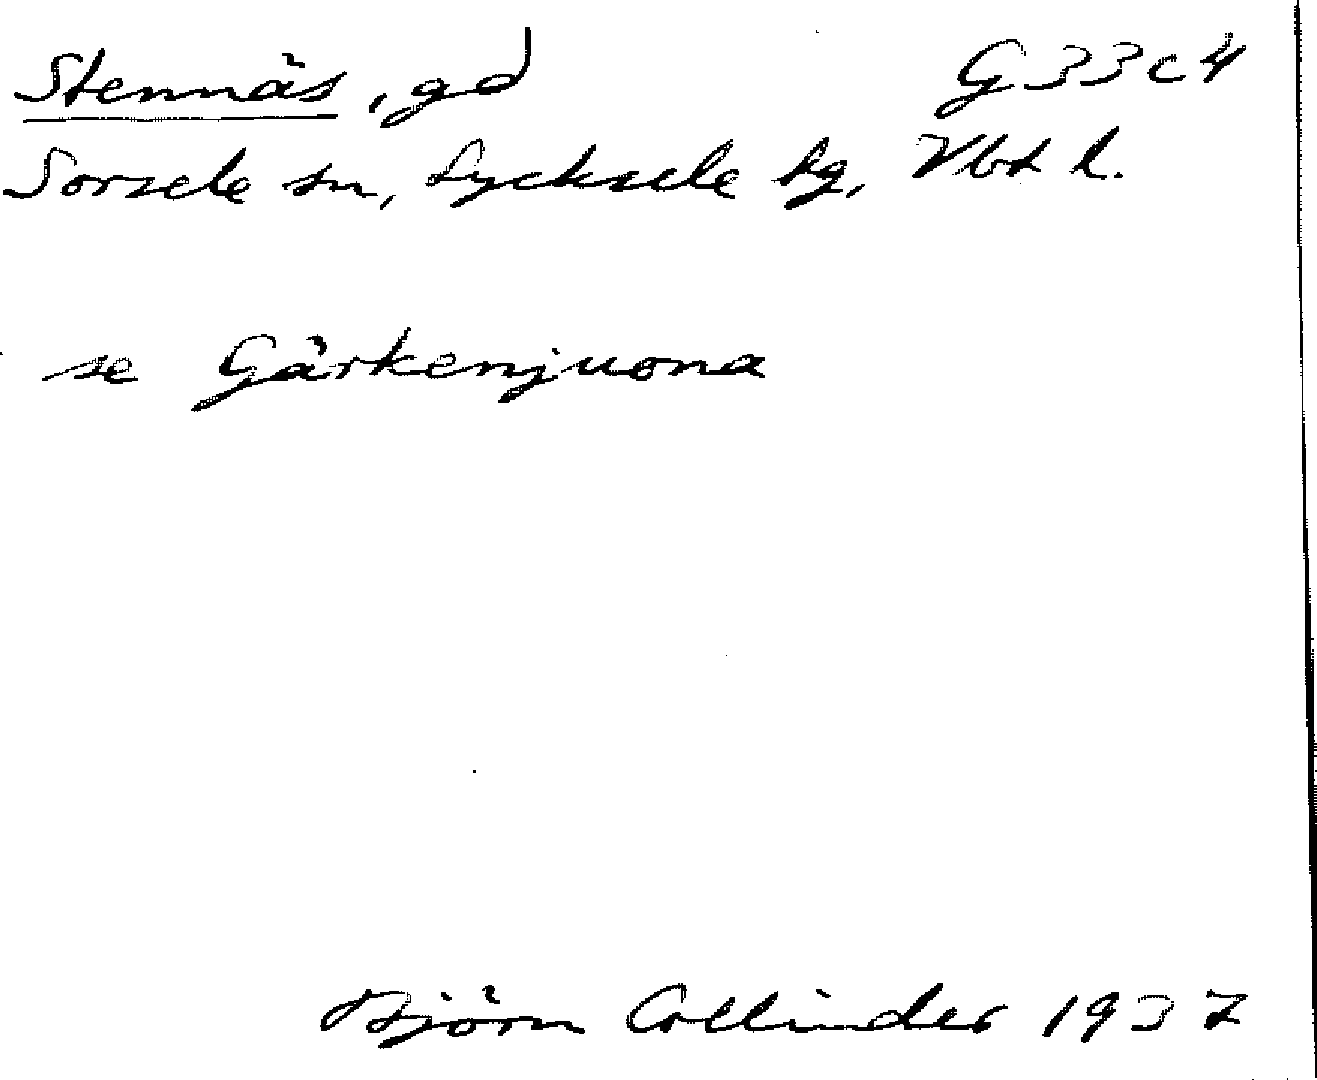 Stennäs, gd G 33 c 4
Sorsele sn, Lycksele lg, Vbt l.
se Gärkenjuona
Björn Collinder 1937